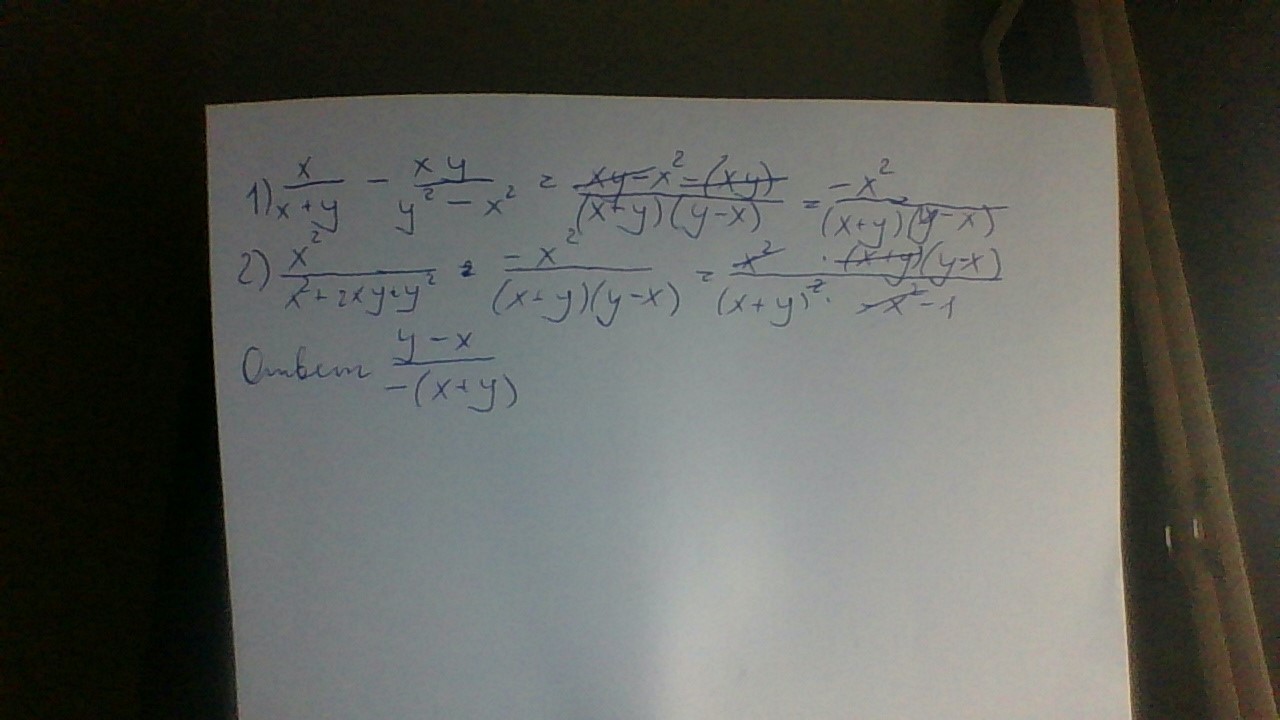 1) x/(x+y) - xy/(y² - x²) = (xy - x² - (xy))/((x+y)(y-x)) = -x²/((x+y)(y-x))
2) x²/(x²+2xy+y²) : -x²/((x+y)(y-x)) = x² · (x+y)(y-x)/((x+y)² · -x² -1)
Ответ (y-x)/(-(x+y))